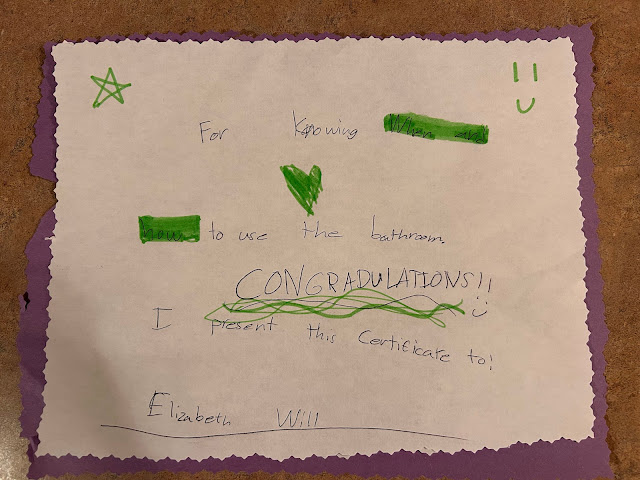 For Knowing When and
how to use the bathroom.
CONGRADULATIONS!!
I present this Certificate to!
Elizabeth Will